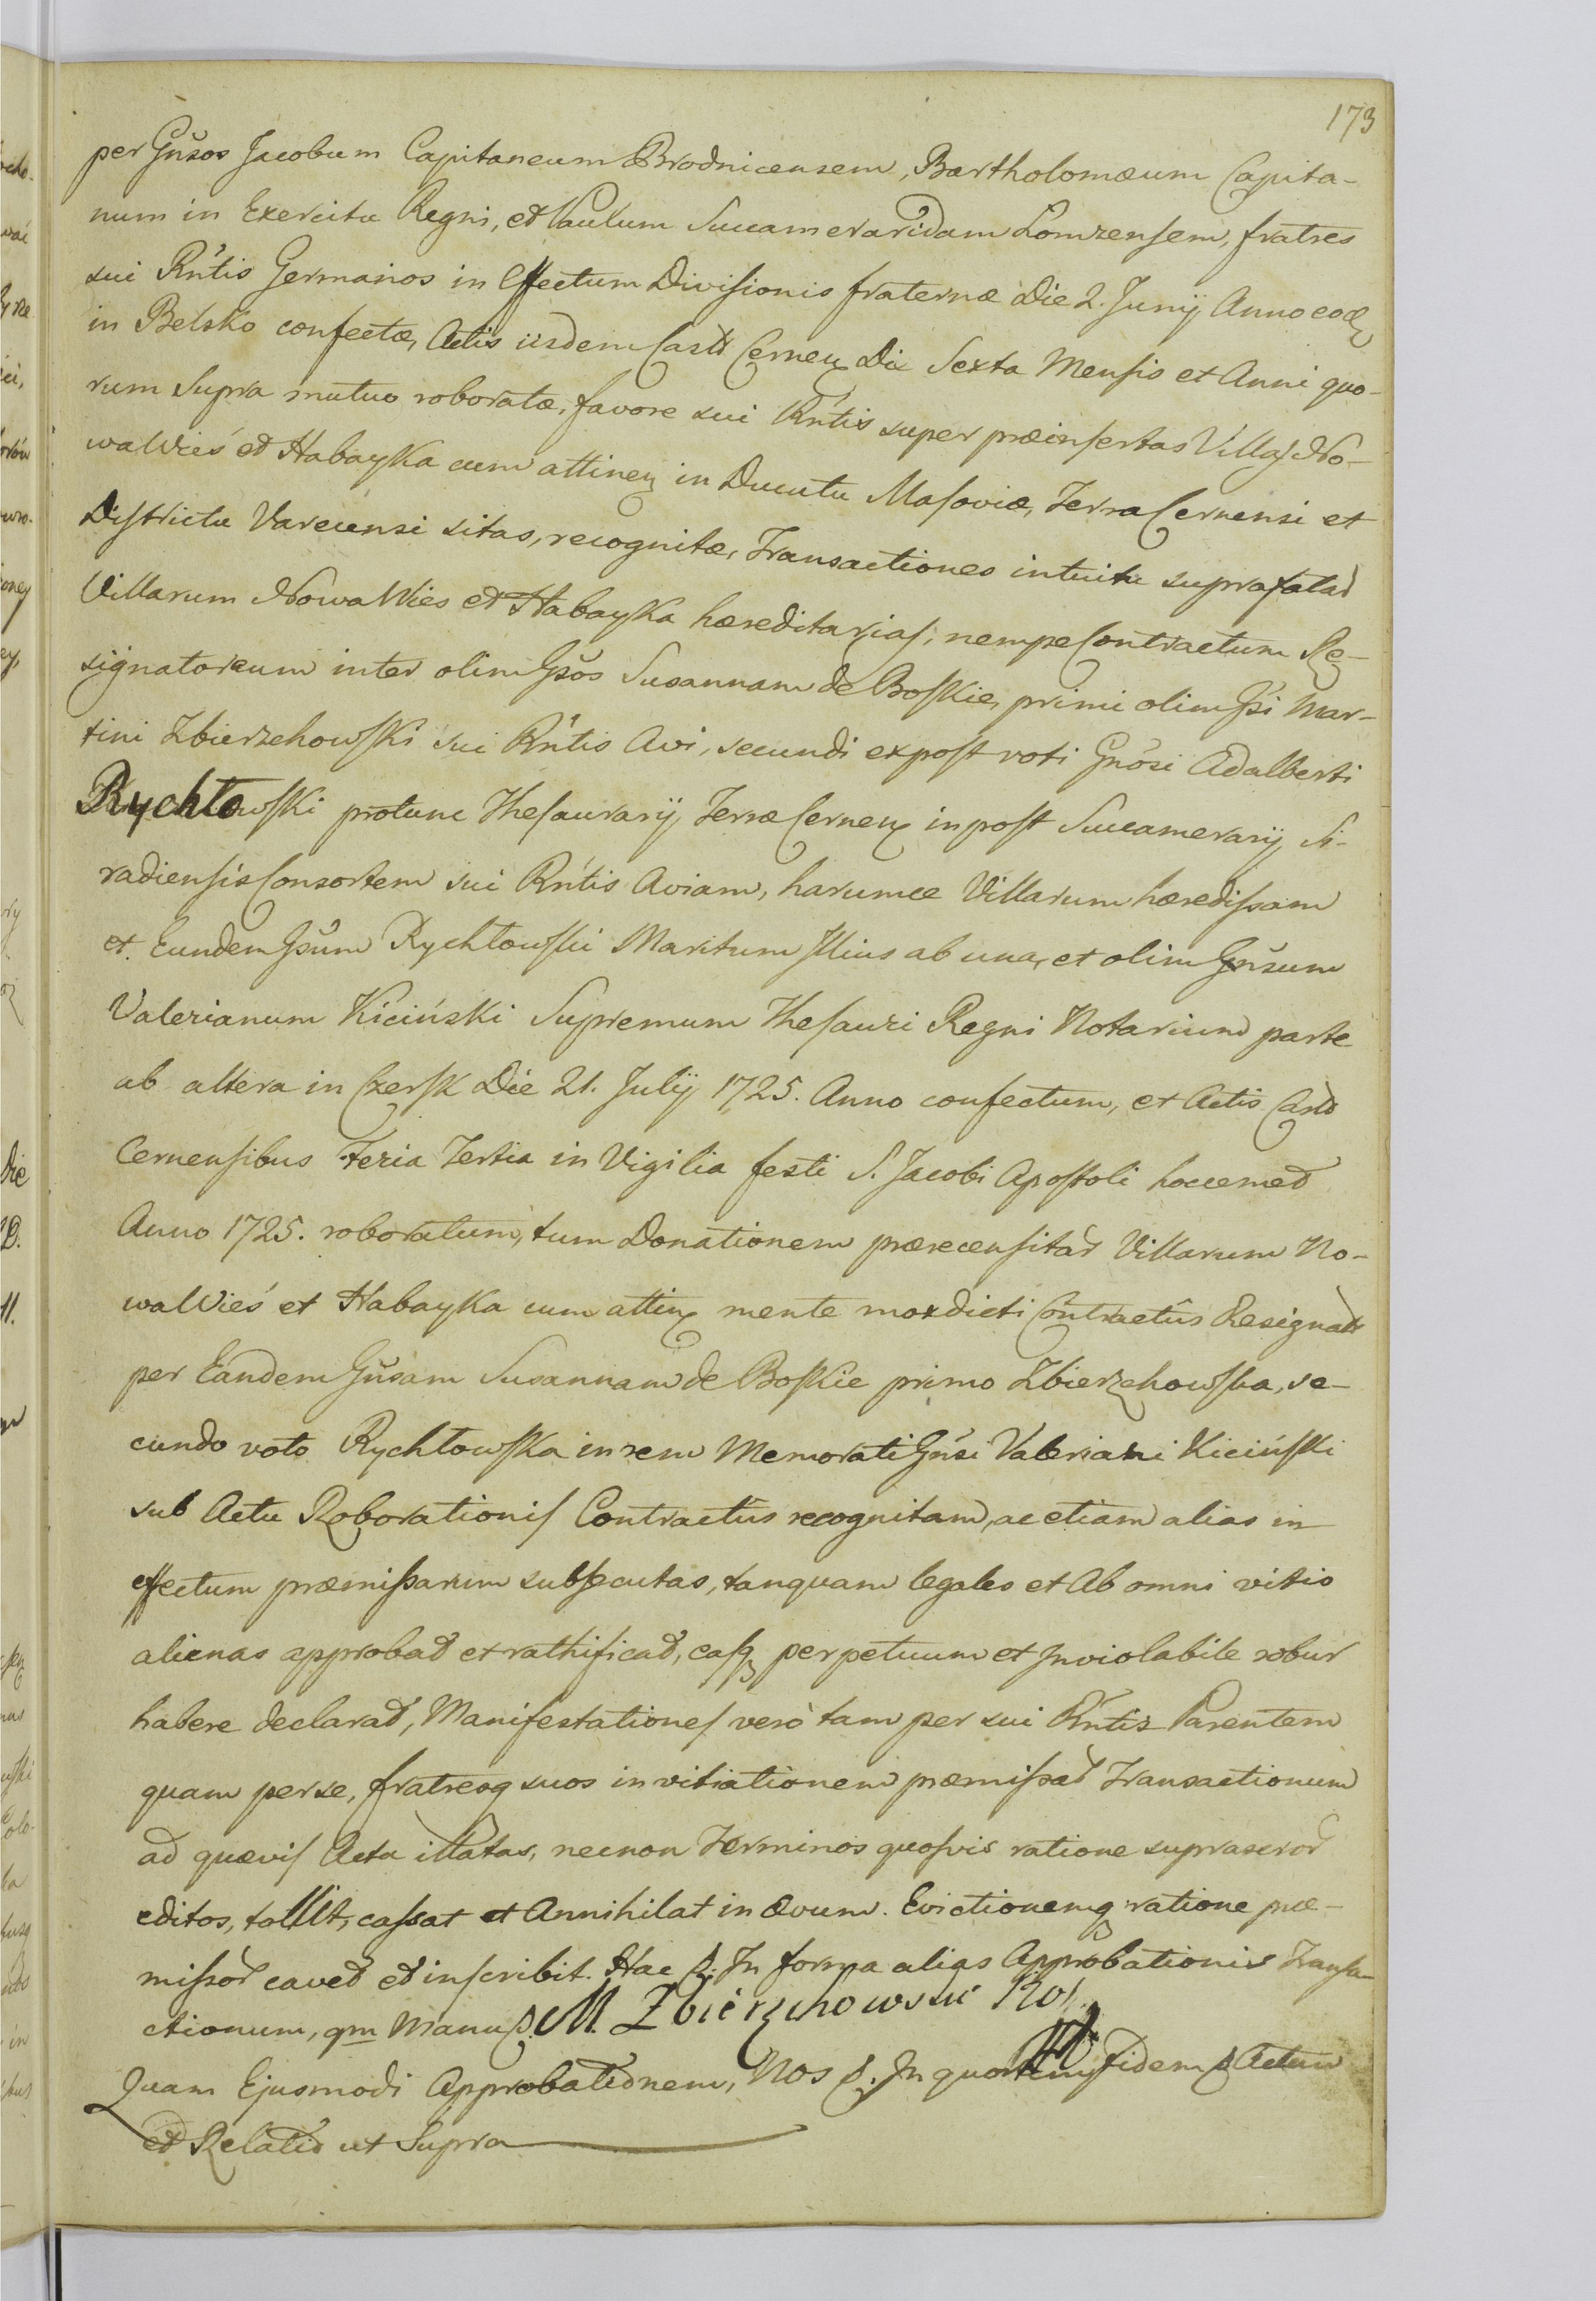 173
per Gnŝos Jacobum Capitaneum Brodnicensem, Bartholomæum Capita-
num in Exercitu Regni, et Paulum Succameraridam Lomzensem, fratres
sui Rńtis Germanos in Effectum Divisionis fraternæ Die 2. Junÿ Anno eod
in Belsko confectæ, Actis iisdem Castr Cernen Die Sexta Mensis et Anni quo-
rum Supra mutuo roboratæ, favore sui Rńtis super præinsertas Villas No-
waWieś et Habayka cum attinen in Ducatu Masoviæ, Terra Cernensi et
Districtu Varecensi sitas, recognitæ, Transactiones intuitu suprafatar
Villarum NowaWies et Habayka hæreditarias, nempe Contractum Re-
signatorium inter olim Gŝos Susannam de Boskie, primi olim Gŝi Mar-
tini Zbierzchowski sui Rńtis Avi, secundi expost voti Gnŏsi Adalberti
Rychłowski protunc Thesaurarÿ Terræ Cernen inpost Succamerarÿ Si-
radiensis Consortem sui Rńtis Aviam, harumce Villarum hæredissam
et Eundem Gŝum Rychłowski Maritum Illius ab una, et olim Gnŝum
Valerianum Kiciński Supremum Thesauri Regni Notarium parte
ab altera in Czersk Die 21. Julÿ 1725. Anno confectum, et Actis Castr
Cernensibus Feria Tertia in Vigilia festi S. Jacobi Apostoli hoccemet
Anno 1725. roboratum, tum Donationem præcensitar Villarum No-
waWieś et Habayka cum attin mente moxdicti Contractûs Resignatr
per Eandem Gnŝam Susannam de Boskie primo Zbierzchowska, se-
cundo voto Rychłowska in rem Memorati Gnśi Valeriani Kiciński
sub Actu Roborationis Contractûs recognitam, ac etiam alias in
effectum præmissarum subsecutas, tanquam legales et Ab omni vitio
alienas approbat et rathificat, easq perpetuum et Inviolabile robur
habere declarat, Manifestationes verò tam per sui Rńtis Parentem
quam per se, fratresq suos in vitiationem præmissar Transactionum
ad quævis Acta illatas, necnon Terminos quosvis ratione supraseror
editos, tollit, cassat et Annihilat in ævum. Evictionemq ratione præ-
missor cavet et inscribit. Hac p. In forma alias Approbationis Transa-
ctionum, qm Manu p. M. Zbierzchowski
Quam Ejusmodi Approbationem, Nos p. In quorum fidem p Actum
et Relatio ut Supra